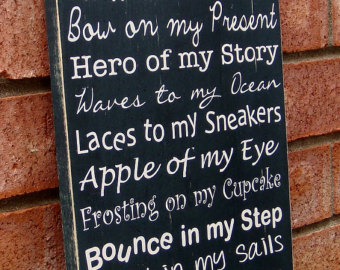 Bow on my Present
Hero of my Story
Waves to my Ocean
Laces to my Sneakers
Apple of my Eye
Frosting on my Cupcake
Bounce in my Step
in my Sails